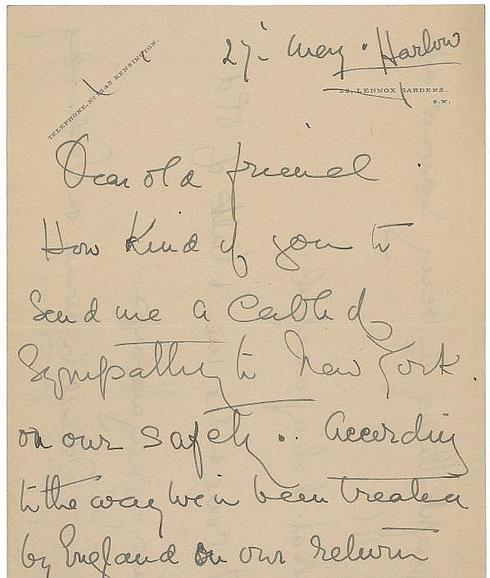 27th May. Harlow
TELEPHONE, Nº 1243 KENSINGTON.
23, LENNOX GARDENS.
S.W.
Dear old friend
How Kind of you to
Send me a Cable of
Sympathy to New York
on our safety.. According
to the way we've been treated
by England on our return